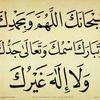 سُبْحَانَكَ اللَّهُمَّ وَبِحَمْدِكَ
وَتَبَارَكَ اسْمُكَ وَتَعَالَى جَدُّكَ
وَلَا إِلَهَ غَيْرُكَ